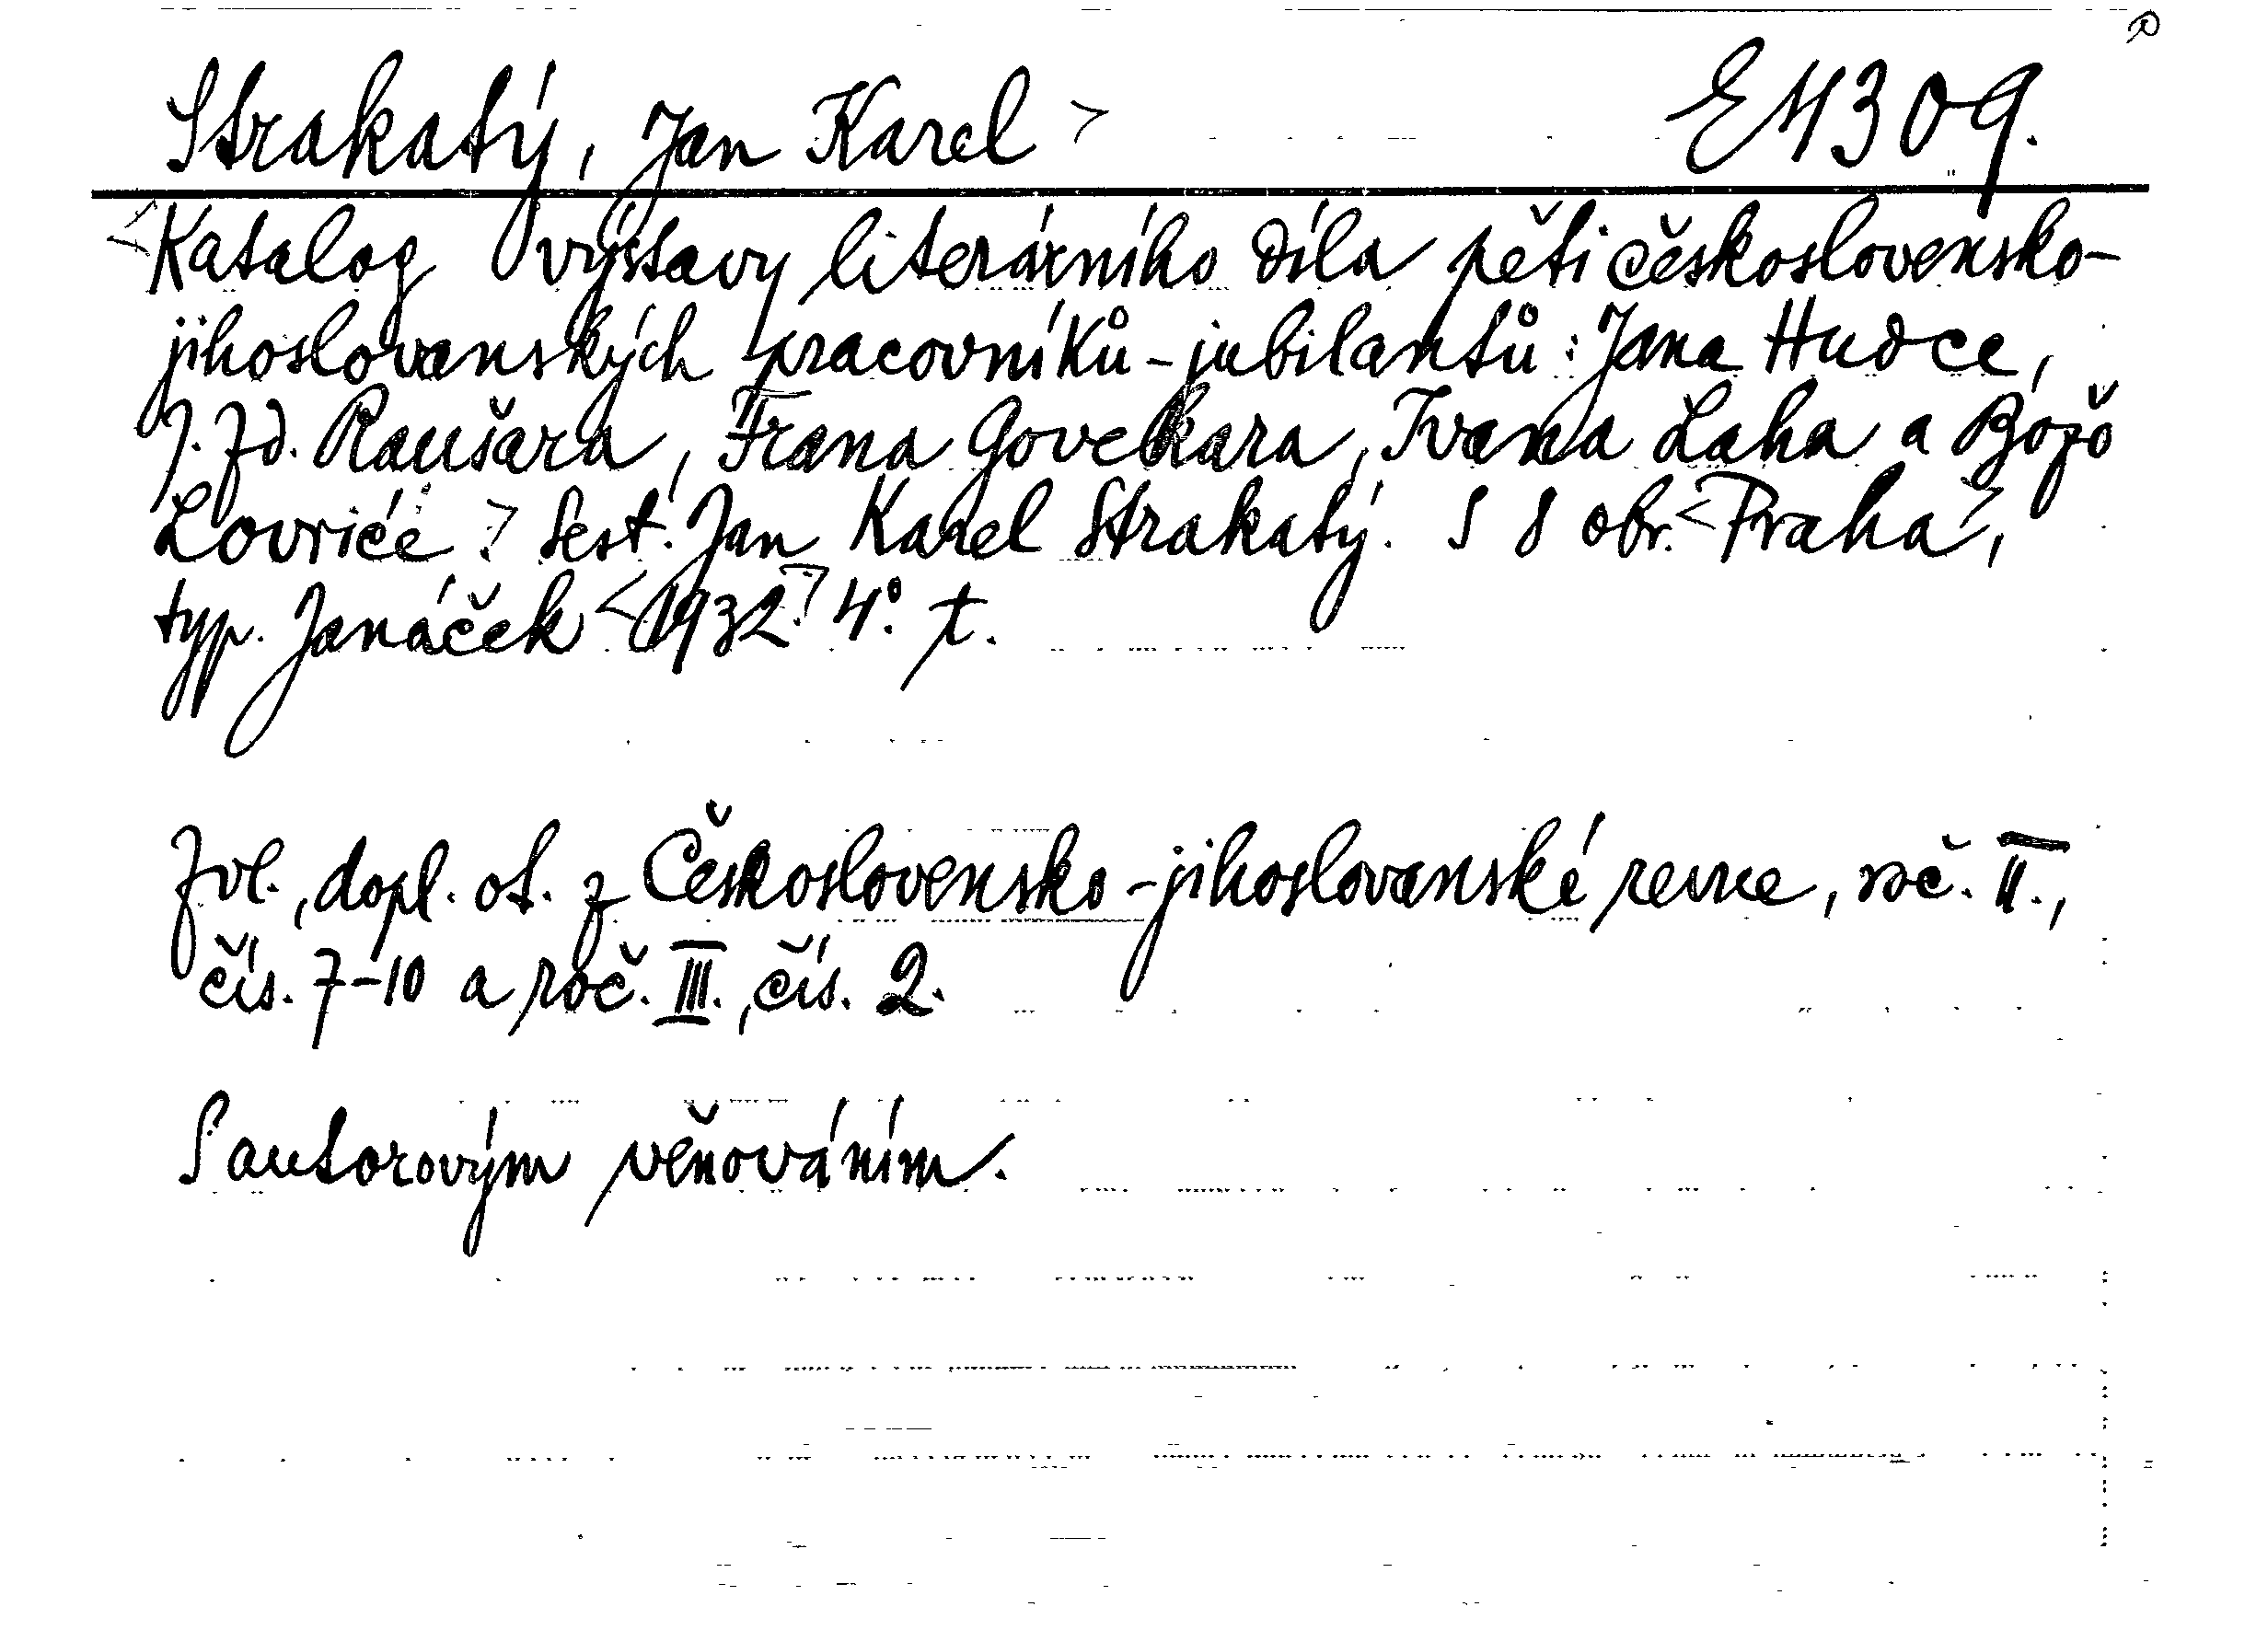 Strakatý, Jan Karel > E 4309.
<Katalog výstavy literárního díla pěti československo-
jihoslovanských pracovníků-jubilantů: Jana Hudce,
J. Zd. Raušara, Frana Govekara, Ivana Laha a Božo
Lovriće.> Sest. Jan Karel Strakatý. S 8 obr. <Praha>,
typ. Janáček <1932.> 4°. t.
Zvl., dopl. ot. z Československo-jihoslovanské revue, roč. II.,
čís. 7-10 a roč. III., čís. 2.
S autorovým věnováním.